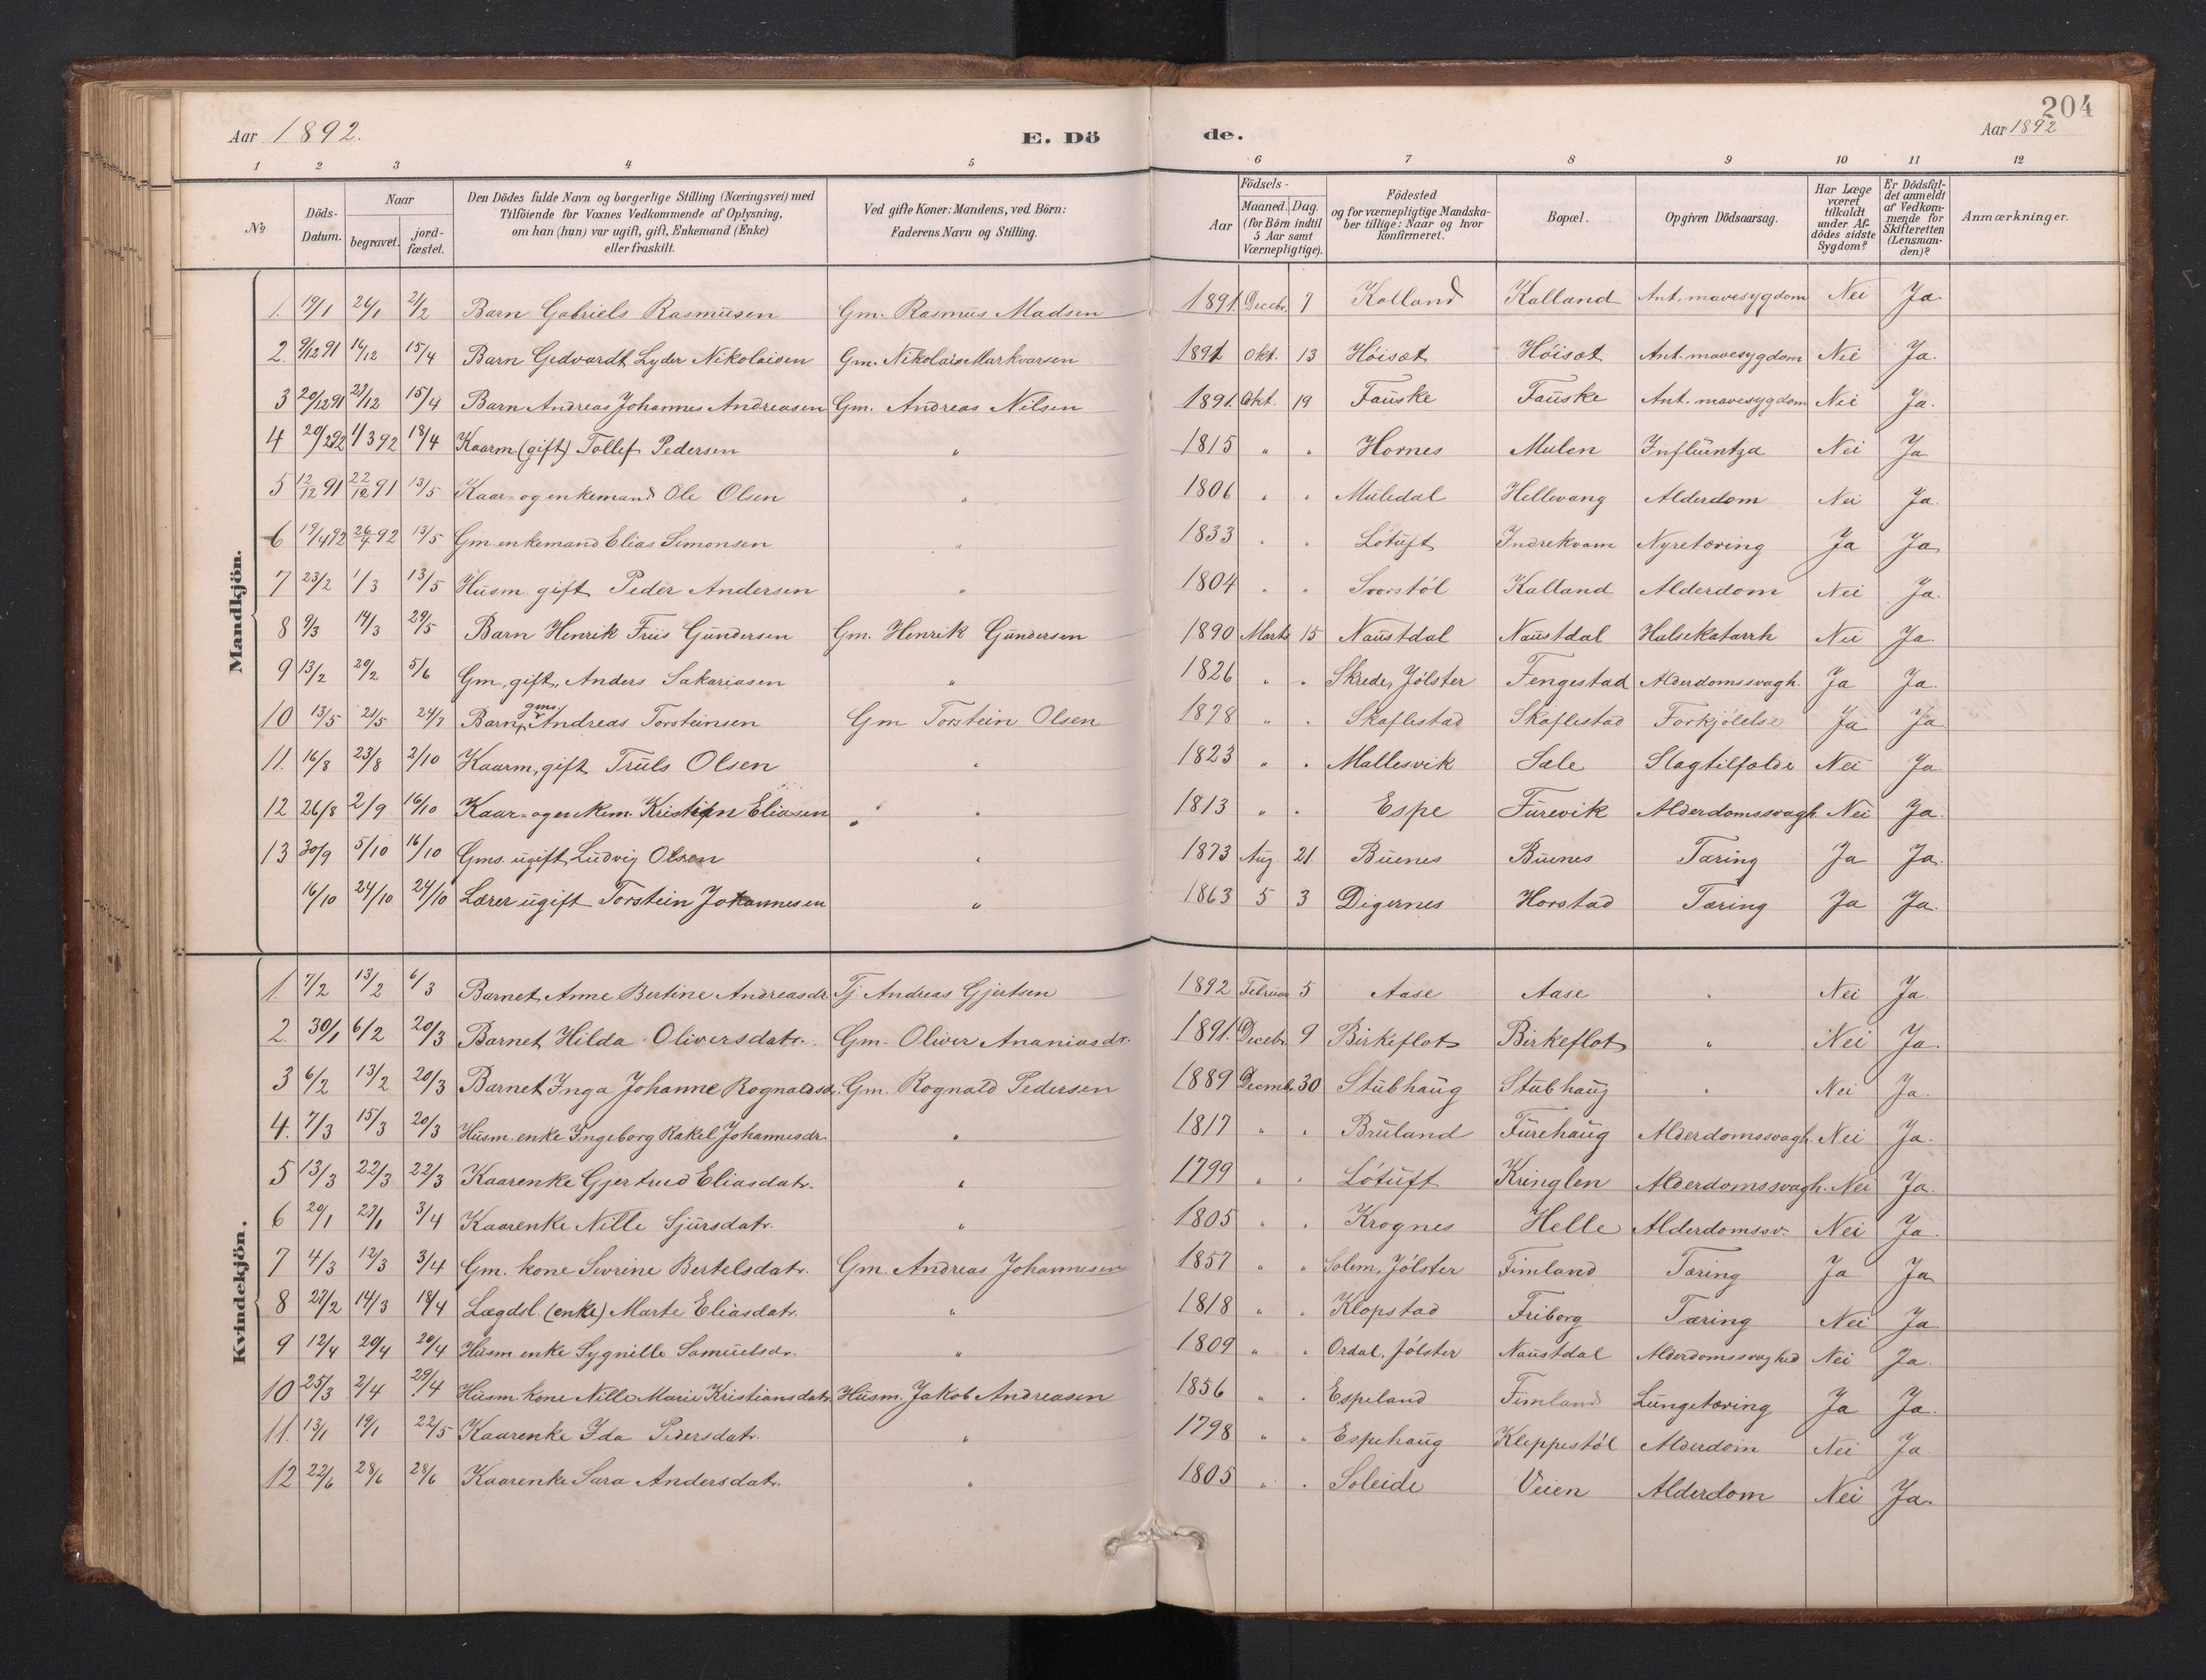 204
Aar 1892. E. Dö de. Aar 1892
1 2 3 4 5 6 7 8 9 10 11 12
№
Döds-Datum.
Naar begravet. jordfæstet.
Den Dödes fulde Navn og borgerlige Stilling (Næringsvei) med
Tilföiende for Voxnes Vedkommende af Oplysning,
om han (hun) var ugift, gift, Enkemand (Enke)
eller fraskilt.
Ved gifte Koner: Mandens, ved Börn:
Faderens Navn og Stilling.
Födsels-
Aar Maaned. Dag.
(for Börn indtil
5 Aar samt
Værnepligtige).
Födested
og for værnepligtige Mandska-
ber tillige: Naar og hvor
konfirmeret.
Bopæl.
Opgiven Dödsaarsag.
Har Læge
været
tilkaldt
under Af-
dödes sidste
Sygdom?
Er Dödsfal-
det anmeldt
af Vedkom-
mende for
Skifteretten
(Lensman-
den)?
Anmærkninger.
Mandkjön.
1. 19/1 26/1 21/2 Barn Gabriels Rasmusen Gm. Rasmus Madsen 1891. Decebr. 7 Kalland Kalland Ant. mavesygdom Nei Ja
2. 9/12 91 16/12 15/4 Barn Gedvardt Lyder Nikolaisen Gm. Nikolais Markvarsen 1891 Okt. 13 Høisæt Høisæt Ant. mavesygdom Nei Ja.
3 20/12 91 27/12 15/4 Barn Andreas Johannes Andreasen Gm. Andreas Nilsen 1891. Okt. 19 Fauske Fauske Ant. mavesygdom Nei Ja.
4 20/2 92 1/3 92 18/4 Kaarm (gift) Tollef Pedersen " 1815 " " Hornes Mulen Influentza Nei Ja
5 12/12 91 22/12 91 13/5 Kaar- og enkemand Ole Olsen " 1806 " " Muledal Hellevang Alderdom Nei Ja.
6 19/4 92 26/4 92 13/5 Gm. enkemand Elias Simonsen " 1833 " " Løtuft Indrekvam Nyretæring Ja Ja
7 23/2 1/3 13/5 Husm. gift Peder Andersen " 1804 " " Svorstøl Kalland Alderdom Nei Ja.
8 9/3 14/3 29/5 Barn Henrik Friis Gundersen Gm. Henrik Gundersen 1890 Marts 15 Naustdal Naustdal Halsekatarrh Nei Ja.
9 13/2 20/2 5/6 Gm, gift, Anders Sakariasen " 1826 " " Skrede, Jølster Fengestad Alderdomssvagh. Ja Ja.
10 13/5 21/5 24/7 Barn, gms. Andreas Torsteinsen Gm Torstein Olsen 1878 " " Skaflestad Skaflestad Forkjølelse Ja Ja
11. 16/8 23/8 2/10 Kaarm, gift Truls Olsen " 1823 " " Mallesvik Sæle Slagtilfælde Nei Ja
12 26/8 2/9 16/10 Kaar- og enkem. Kristian Eliasen " 1813 " " Espe Furevik Alderdomssvagh. Nei Ja.
13 30/9 5/10 16/10 Gms. ugift Ludvig Olsen " 1873 Aug. 21. Buenes Buenes Tæring Ja Ja.
16/10 24/10 24/10 Lærer ugift Torstein Johannesen " 1863 5 3 Digernes Horstad Tæring Ja Ja.
Kvindekjön.
1. 7/2 13/2 6/3 Barnet Anne Bertine Andreasdr. Tj. Andreas Gjertsen 1892 Februar 5 Aase Aase " Nei Ja.
2. 30/1 6/2 20/3 Barnet Hilda Oliversdatr. Gm. Oliver Ananiasdr. 1891. Decebr. 9 Birkeflot Birkeflot " Nei Ja.
3 6/2 13/2 20/3 Barnet Inga Johanne Rognaldsd. Gm. Rognald Pedersen 1889 Decmb. 30 Stubhaug Stubhaug " Nei Ja.
4. 7/3 15/3 20/3 Husm. enke Ingeborg Rakel Johannesdr. " 1817 " " Bruland Furehaug Alderdomssvagh. Nei Ja.
5 13/3 22/3 22/3 Kaarenke Gjertrud Eliasdatr. " 1799 " " Løtuft Kringlen Alderdomssvagh. Nei Ja.
6 20/1 27/1 3/4 Kaarenke Nille Sjursdatr. " 1805 " " Krognes Helle Alderdomssv. Nei Ja.
7 4/3 12/3 3/4 Gm. kone Sevrine Bertelsdatr. Gm. Andreas Johannesen 1857 " " Solem, Jølster Fimland Tæring Ja Ja
8 27/2 14/3 18/4 Lægdsl. (enke) Marte Eliasdatr. " 1818 " " Klopstad Friborg Tæring Nei Ja.
9 12/4 20/4 20/4 Husm. enke Sygnille Samuelsdr. " 1809 " " Ordal, Jølster Naustdal Alderdomssvaghed Nei Ja.
10 25/3 2/4 29/4 Husm. kone Nille Marie Kristiansdatr. Husm. Jakob Andreasen 1856 " " Espeland Fimland Lungetæring Ja Ja.
11. 13/1 19/1 22/5 Kaarenke Ida Pedersdatr. " 1798 " " Espehaug Kleppestøl Alderdom Nei Ja.
12 22/6 28/6 28/6 Kaarenke Sara Andersdatr. " 1805 " " Soleide Veien Alderdom Nei Ja.